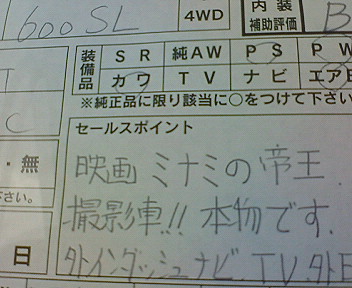 600SL 4WD 内装 補助評価 B
装備品 SR 純AW PS PW
カワ TV ナビ エアB
※純正品に限り該当に○をつけて下さい
C
セールスポイント
・無 映画 ミナミの帝王
さい。 撮影車!! 本物です.
日 外インダッシュナビ.TV.外